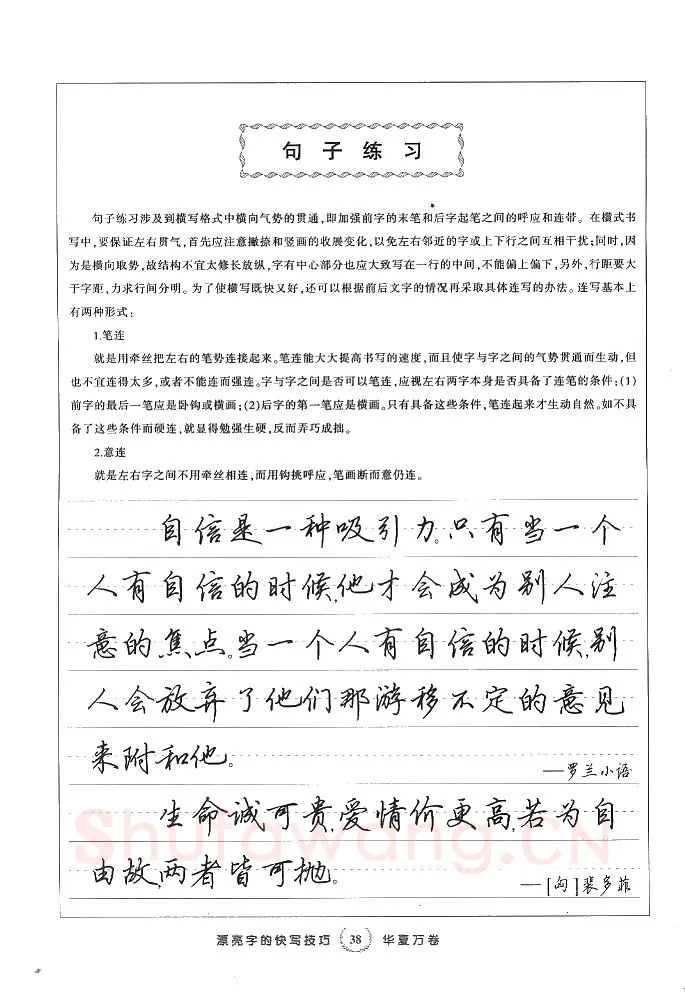 句子练习
句子练习涉及到横写格式中横向气势的贯通,即加强前字的末笔和后字起笔之间的呼应和连带。在横式书
写中,要保证左右贯气,首先应注意撇捺和竖画的收展变化,以免左右邻近的字或上下行之间互相干扰;同时,因
为是横向取势,故结构不宜太修长放纵,字有中心部分也应大致写在一行的中间,不能偏上偏下,另外,行距要大
于字距,力求行间分明。为了使横写既快又好,还可以根据前后文字的情况再采取具体连写的办法。连写基本上
有两种形式:
1.笔连
就是用牵丝把左右的笔势连接起来。笔连能大大提高书写的速度,而且使字与字之间的气势贯通而生动,但
也不宜连得太多,或者不能连而强连。字与字之间是否可以笔连,应视左右两字本身是否具备了连笔的条件:(1)
前字的最后一笔应是卧钩或横画;(2)后字的第一笔应是横画。只有具备这些条件,笔连起来才生动自然。如不具
备了这些条件而硬连,就显得勉强生硬,反而弄巧成拙。
2.意连
就是左右字之间不用牵丝相连,而用钩挑呼应,笔画断而意仍连。
自信是一种吸引力。只有当一个
人有自信的时候,他才会成为别人注
意的焦点。当一个人有自信的时候,别
人会放弃了他们那游移不定的意见
来附和他。
—罗兰小语
生命诚可贵,爱情价更高,若为自
由故,两者皆可抛。
—[匈]裴多菲
Shufawang.CN
漂亮字的快写技巧 38 华夏万卷